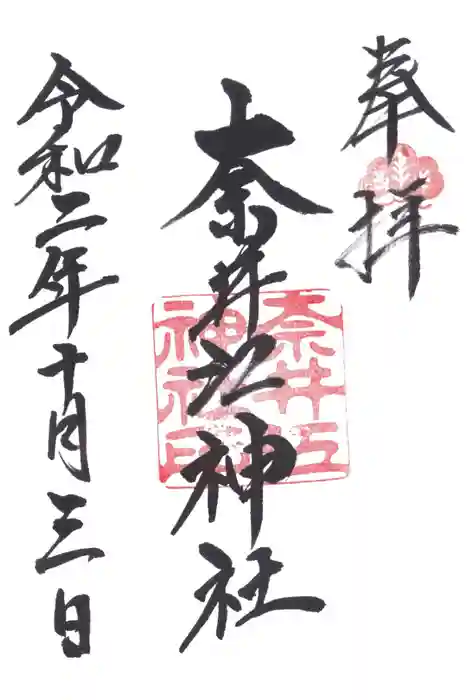 奉拝
奈井江神社
奈井江
神社印
令和二年十月三日